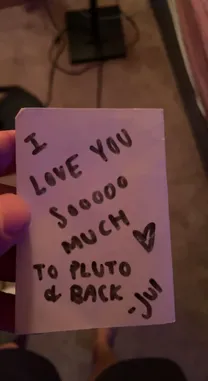 I
LOVE YOU
SOOOOO
MUCH
TO PLUTO
& BACK
-JUI